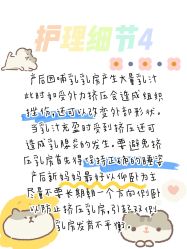 护理细节4
产后因哺乳乳房产生大量乳汁
此时如受外力挤压会造成组织
挫伤,还可以改变外部形状。
当乳汁充盈时受到挤压还可
造成乳腺炎的发生。要避免挤
压乳房首先得保持正确的睡姿
产后新妈妈最好以仰卧为主
尽量不要长期朝一个方向侧卧
以防止挤压乳房,引起双侧
乳房发育不平衡。